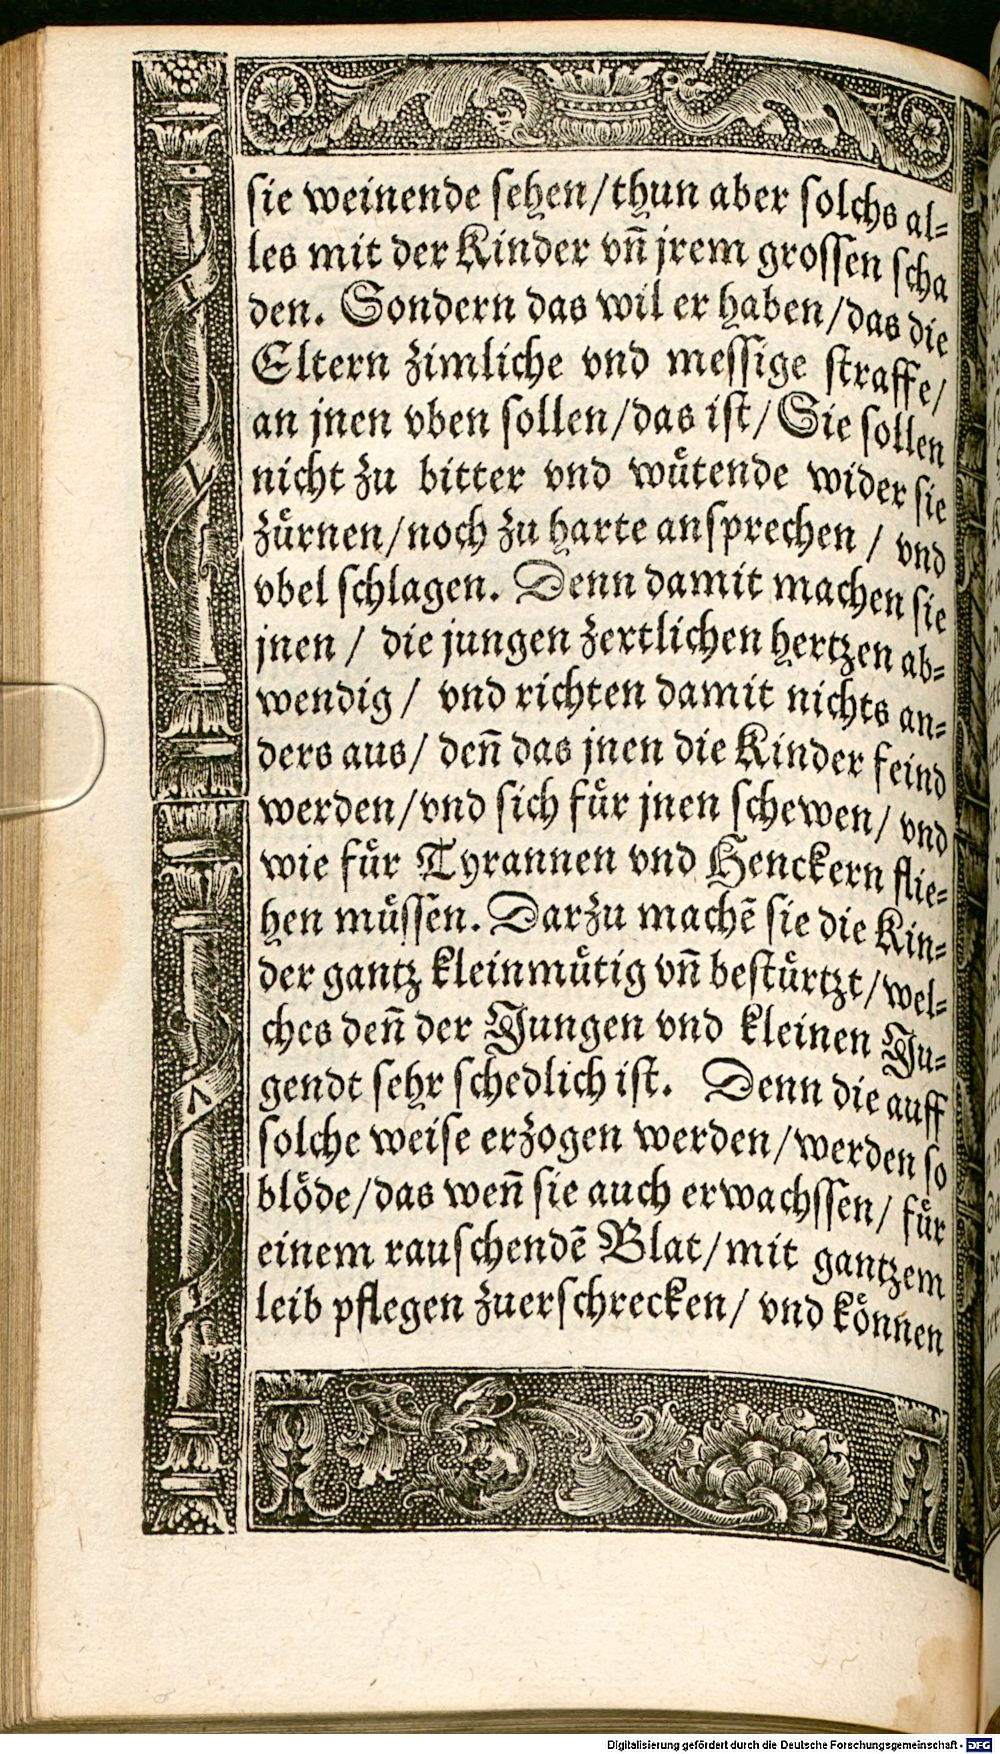 sie weinende sehen/thun aber solchs al-
les mit der Kinder vn̄ jrem grossen scha
den. Sondern das wil er haben/das die
Eltern zimliche vnd messige straffe/
an jnen vben sollen/das ist/Sie sollen
nicht zu bitter vnd wuͤtende wider sie
zuͤrnen/noch zu harte ansprechen / vnd
vbel schlagen. Denn damit machen sie
jnen / die jungen zertlichen hertzen ab-
wendig/ vnd richten damit nichts an-
ders aus/ den̄ das jnen die Kinder feind
werden/vnd sich fuͤr jnen schewen/ vnd
wie fuͤr Tyrannen vnd Henckern flie-
hen muͤssen. Darzu machē sie die Kin-
der gantz kleinmuͤtig vn̄ bestuͤrtzt/wel-
ches den̄ der Jungen vnd kleinen Ju-
gendt sehr schedlich ist. Denn die auff
solche weise erzogen werden/werden so
bloͤde/das wen̄ sie auch erwachssen/ fuͤr
einem rauschendē Blat/mit gantzem
leib pflegen zuerschrecken/ vnd koͤnnen
Digitalisierung gefördert durch die Deutsche Forschungsgemeinschaft - DFG